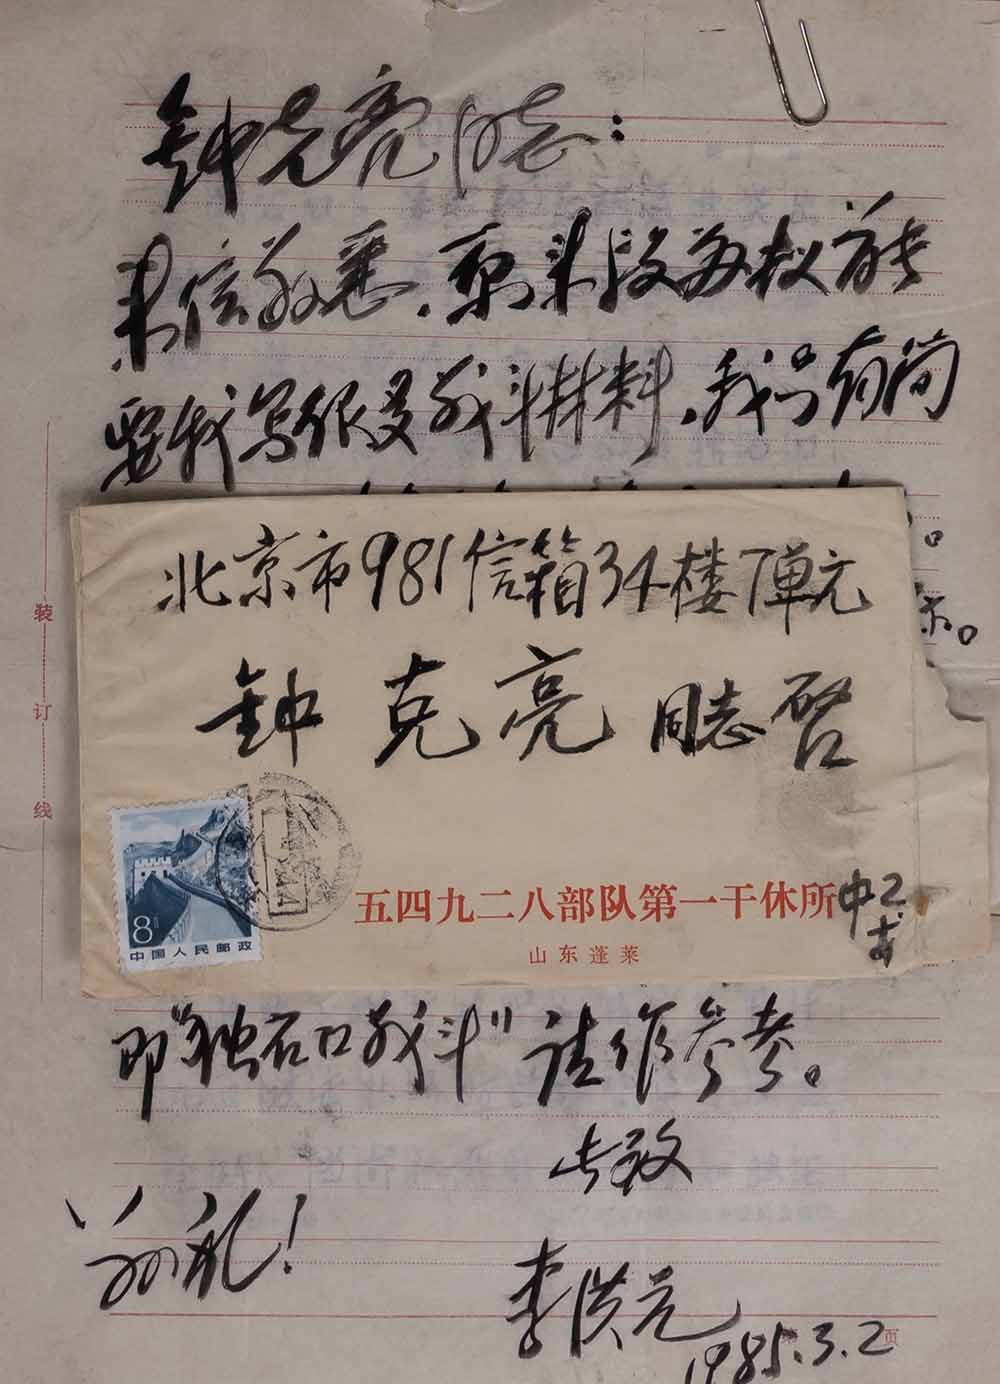 钟克亮同志:
来信敬悉,原来段苏权首长
要我写很多战斗材料,我只有简
北京市981信箱34楼7单元
钟克亮同志启
8分
中国人民邮政
五四九二八部队第一干休所
山东蓬莱
即"独石口战斗"请作参考。
此致
敬礼!
李洪元
1985.3.2
页
装订线